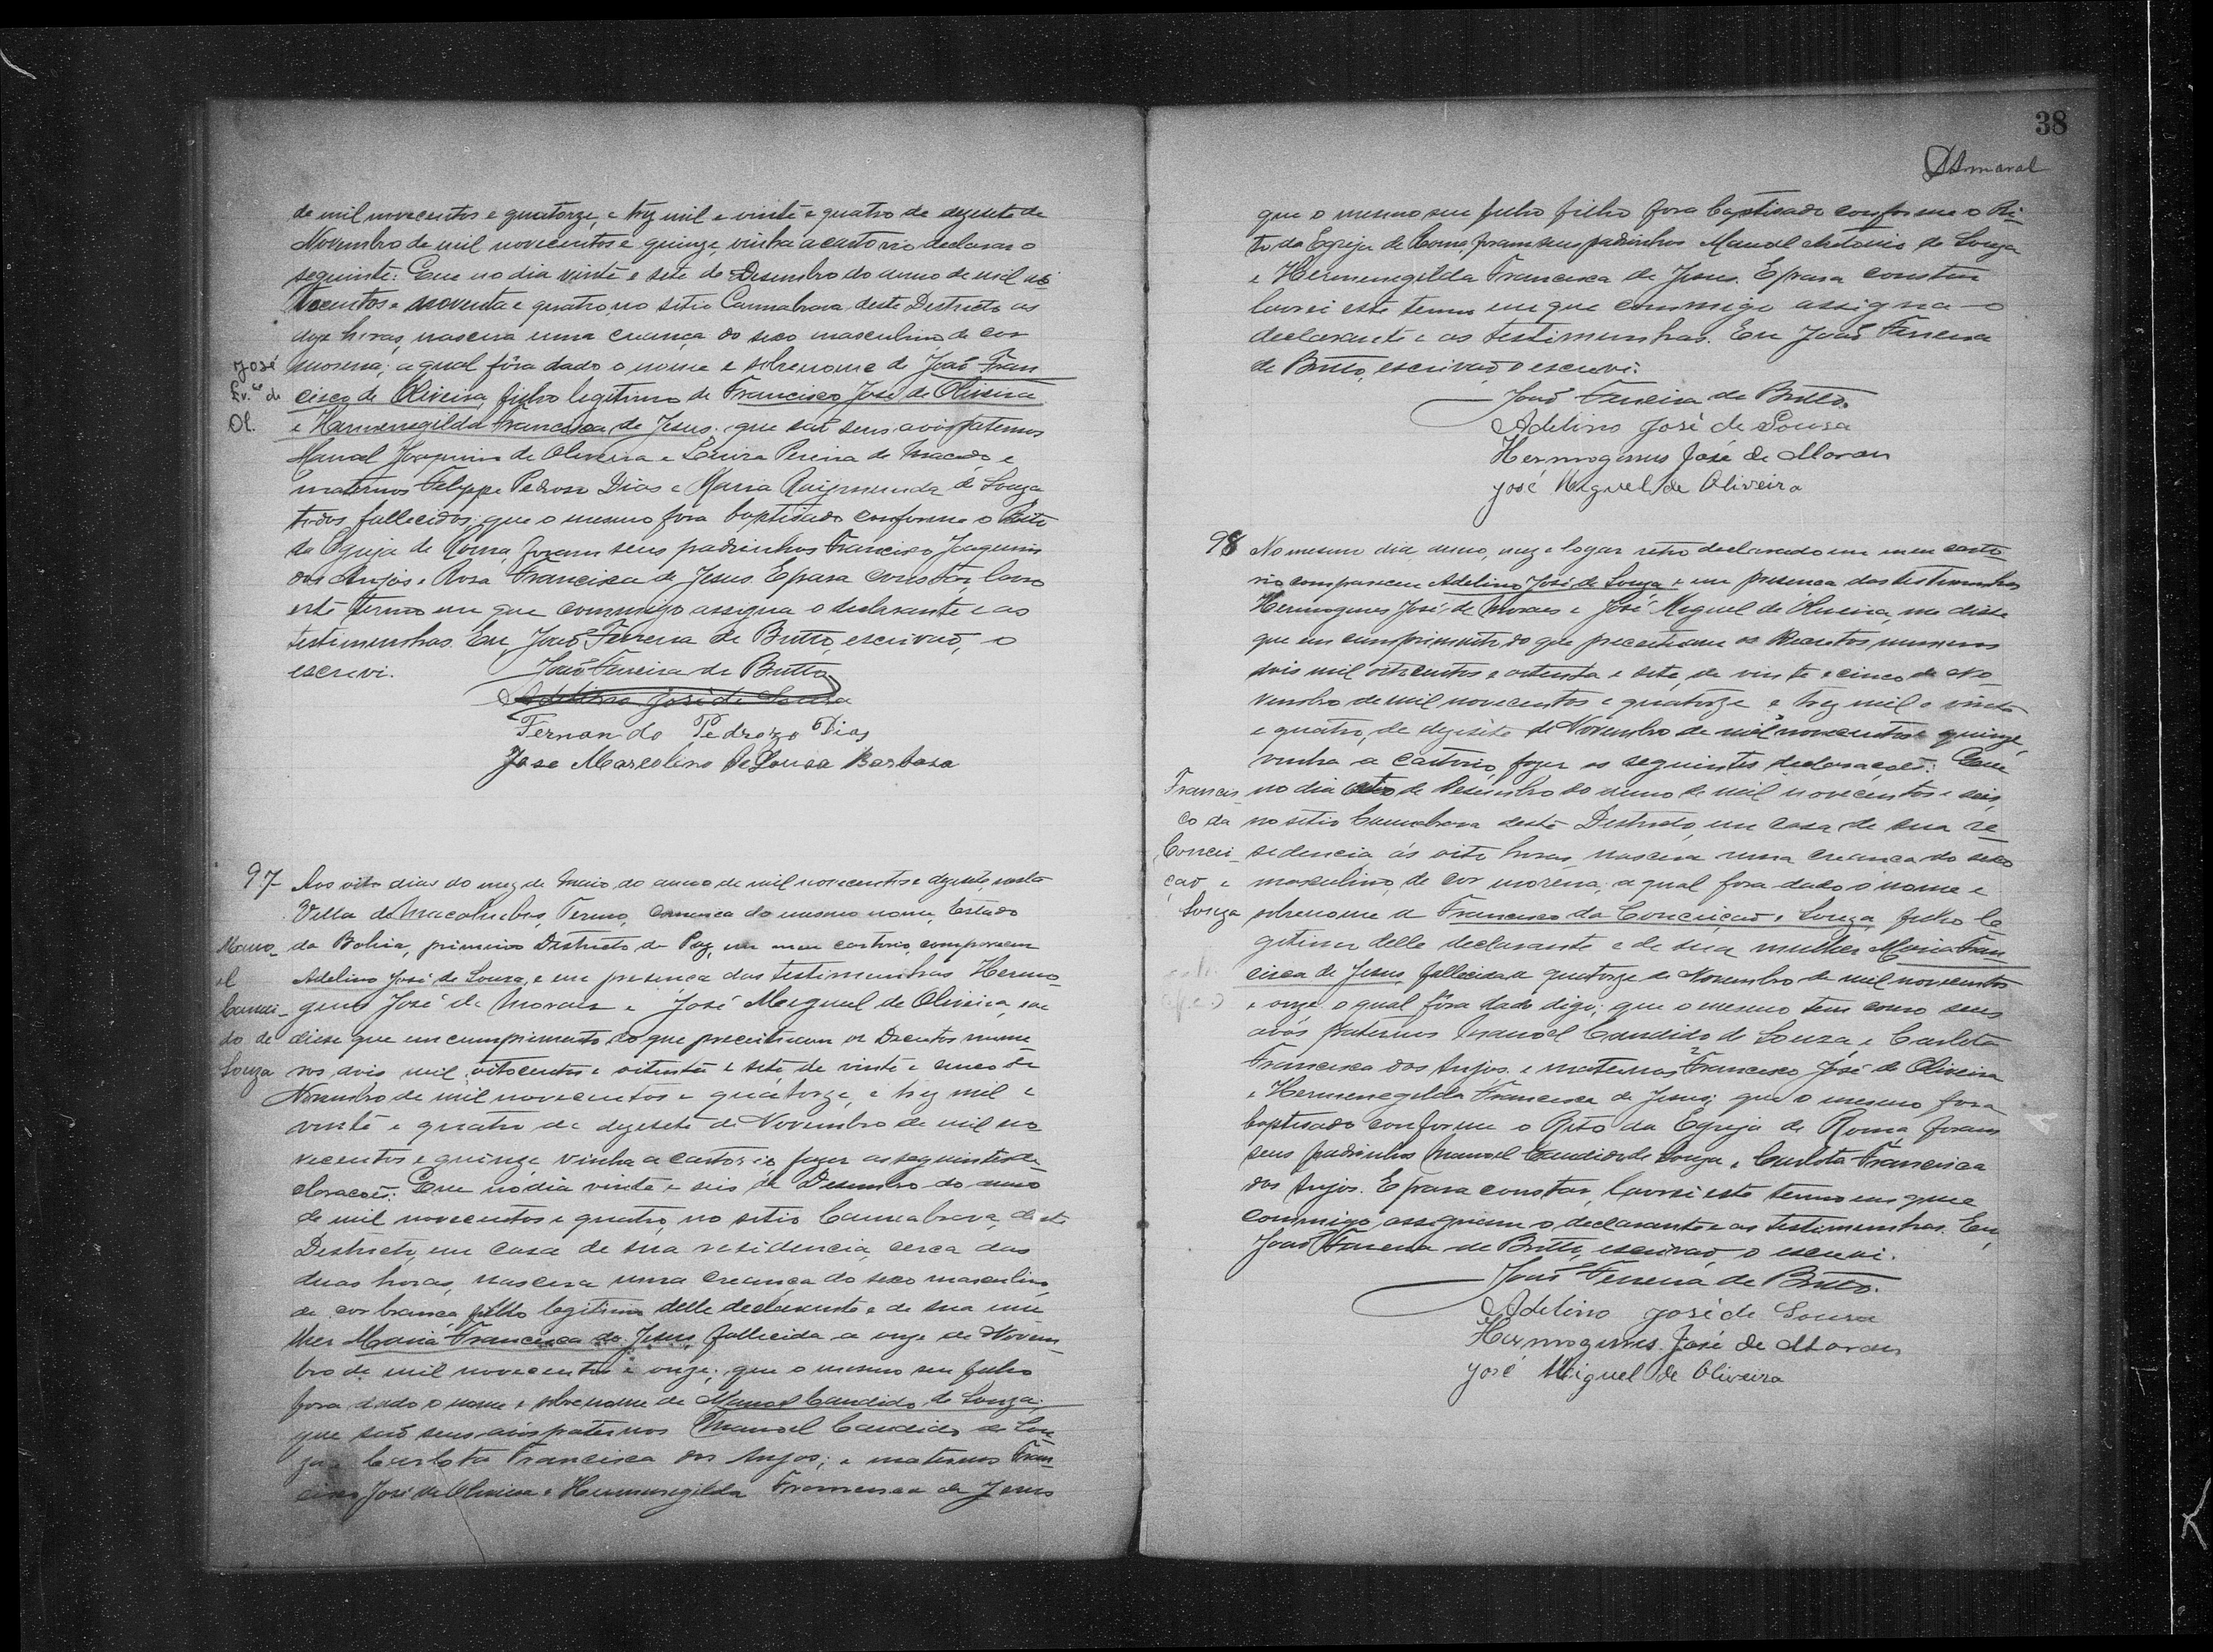 de mil novecentos e quatorze, e trez mil e vinte e quatro de dezesete de
Novembro de mil novecentos e quinze, vinha a cartorio declarar o
seguinte: Que no dia vinte e sete de Desembro do anno de mil oi
tocentos e noventa e quatro, no sitio Cannabrava deste Destricto as
horas, nascera uma creança do sexo masculino, de cor
morena; a qual fôra dado o nome e sobrenome de João Fran
cisco de Oliveira, filho legitimo de Francisco José de Oliveira
e Hermenegilda Francisca de Jesus; que saõ seus avós paternos
Manoel Joaquim de Oliveira e Pereira de Macedo, e
maternos Felippe Pedroso Dias e Maria Raymunda de Souza
todos fallecidos; que o mesmo fora baptisado conforme o Rito
da Egreja de Roma, foram seus padrinhos Francisco Joaquim
dos Anjos e Rosa Francisca de Jesus. E para constar, lavro
este termo em que commigo assigna o declarante e as
testimunhas. Eu, João Ferreira de Britto, escrivaõ, o
escrevi.
José
de
Ol.
João Ferreira de Britto
Adelino José de Sousa
Fernando Pedrozo Dias
Jose Marcolino De Sousa Barbosa
97 Aos oito dias do mez de Maio do anno de mil novecentos e dezesete nesta
Villa de Macahubas, Termo, Comarca do mesmo nome, Estado
da Bahia, primeiro Districto de Paz, em meu cartorio, compareceu
Adelino José de Souza, e em presença das testimunhas Hermo
genes José de Moraes e José Miguel de Oliveira, me
disse que em cumprimento do que preceituam os Decretos nume
ros dois mil oitocentos e oitenta e sete de vinte e cinco de
Novembro de mil novecentos e quatorze, e trez mil e
vinte e quatro de dezesete de Novembro de mil no
vecentos e quinze, vinha a cartorio fazer as seguintes de
claraçoẽs: Que no dia vinte e seis de Desembro do anno
de mil novecentos e quatro, no sitio Cannabrava, deste
Destricto, em casa de sua residencia, cerca das
duas horas, nascera uma creança do sexo masculino,
de cor branca, filho legitimo delle declarante e de sua mu
lher Maria Francisca de Jesus, fallecida a onze de Novem
bro de mil novecentos e onze; que o mesmo seu filho
fora dado o nome e sobrenome de Manoel Candido de Souza;
que saõ seus avós paternos Manoel Candido de Sou
za e Carlota Francisca dos Anjos; e maternos Fran
cisco José de Oliveira e Hermenegilda Francisca de Jesus
Mano
el
Candi
do de
Souza
38
DAmaral
que o mesmo seu filho filho fora baptisado conforme o Ri
to da Egreja de Roma, foram seus padrinhos Manoel Antonio de Souza
e Hermenegilda Francisca de Jesus. E para constar
lavrei este termo em que commigo assigna o
declarante e as testimunhas. Eu João Ferreira
de Britto, escrivaõ o escrevi.
João Ferreira de Britto.
Adelino José de Sousa
Hermogenes José de Moraes
José Miguel de Oliveira
98 No mesmo dia, anno, mez e logar retro declarado em meu carto
rio compareceu Adelino José de Souza e em presença das testimunhas
Hermogenes José de Moraes e José Miguel de Oliveira, me disse
que em cumprimento do que preceituam os Decretos numeros
dois mil oitocentos e oitenta e sete, de vinte e cinco de No
vembro de mil novecentos e quatorze e trez mil e vinte
e quatro, de dezesete de Novembro de mil novecentos e quinze,
vinha a cartorio fazer as seguintes declaraçoẽs: Que
no dia oito de Desembro do anno de mil novecentos e seis,
no sitio Cannabrava deste Destricto, em casa de sua re
sidencia, ás oito horas, nascera uma creança do sexo
masculino, de cor morena; a qual fora dado o nome e
sobrenome de Francisco da Conceiçaõ e Souza, filho le
gitimo delle declarante e de sua mulher Maria Fran
cisca de Jesus, fallecida a quatorze de Novembro de mil novecentos
e onze, o qual fôra dado digo; que o mesmo tem como seus
avós paternos Manoel Candido de Souza, e Carlota
Francisca dos Anjos e maternos Francisco José de Oliveira
e Hermenegilda Francisca de Jesus; que o mesmo fora
baptisado conforme o Rito da Egreja de Roma, foram
seus padrinhos Manoel Candido de Souza e Carlota Francisca
dos Anjos. E para constar, lavrei este termo em que
commigo assignam o declarante e as testimunhas. Eu,
João Ferreira de Britto, escrivaõ, o escrevi.
Francis
co da
Concei
çaõ e
Souza
João Ferreira de Britto.
Adelino José de Sousa
Hermogenes José de Moraes
José Miguel de Oliveira